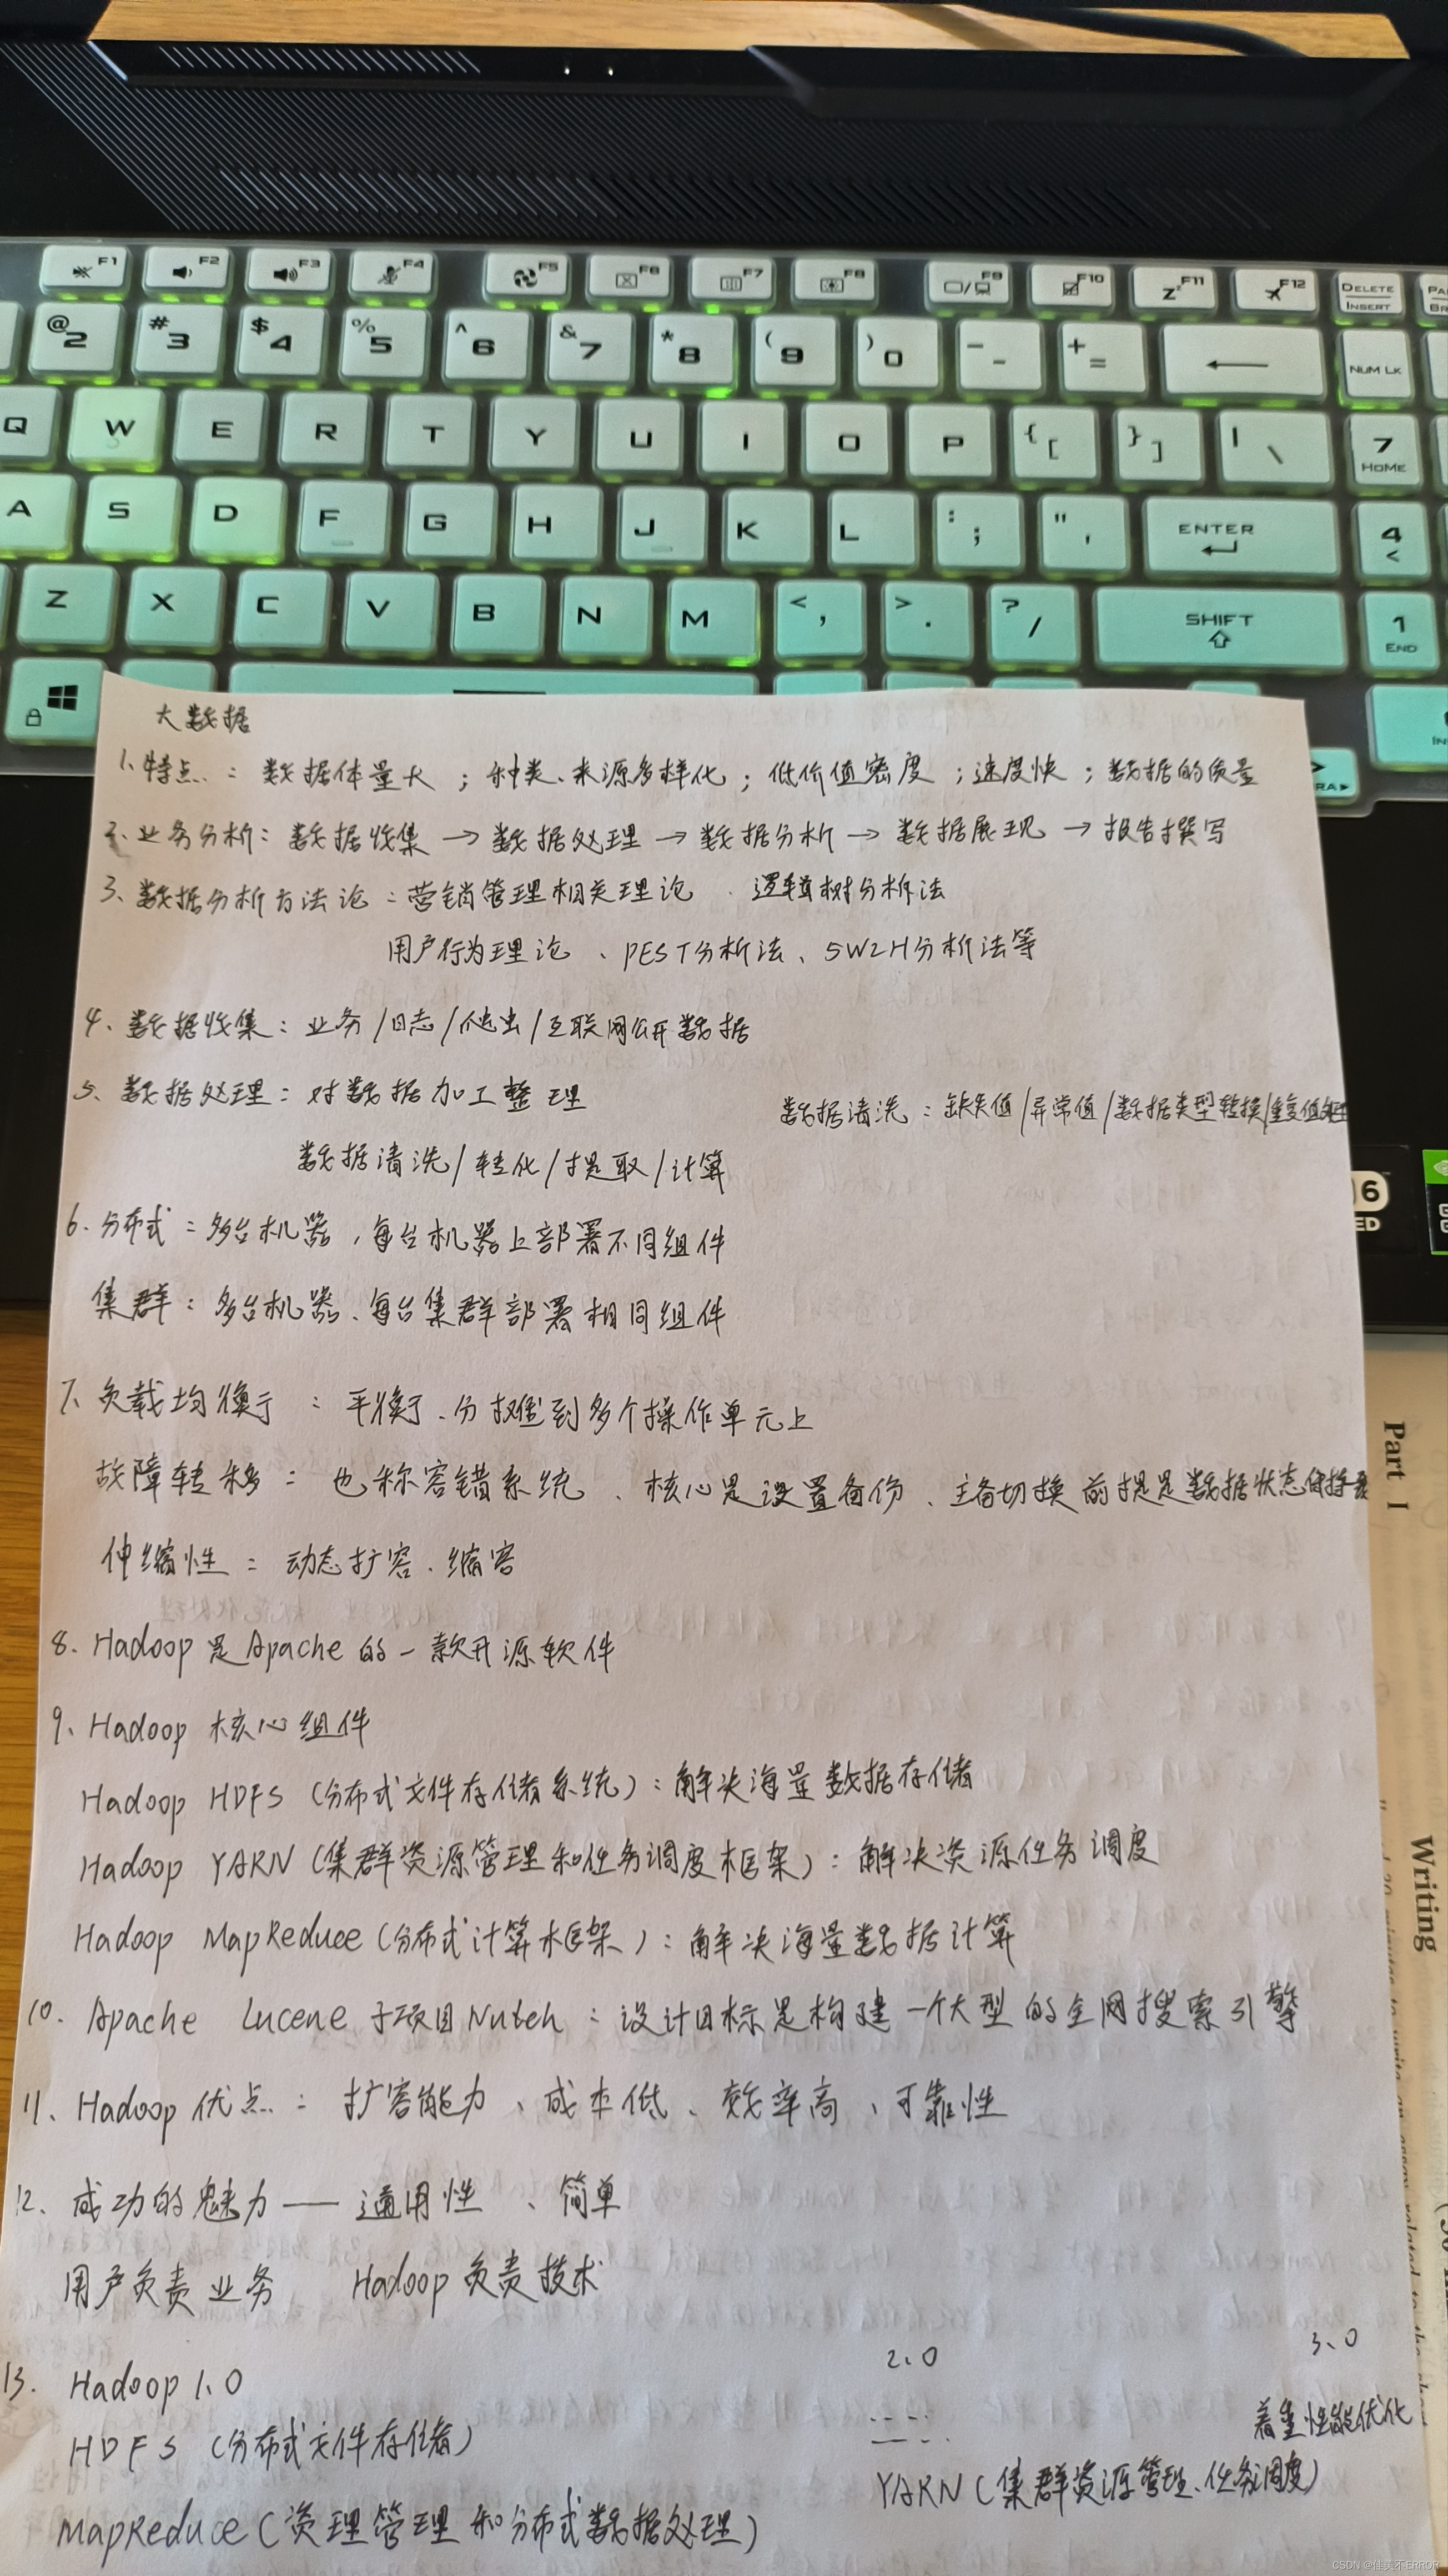 F1 F2 F3 F4 F5 F6 F7 F8 F9 F10 F11 F12 DELETE INSERT
@ 2 # 3 $ 4 % 5 ^ 6 & 7 * 8 ( 9 ) 0 - - + = NUM LK
Q W E R T Y U I O P { [ } ] | \ 7 HOME
A S D F G H J K L : ; " ' ENTER 4 <
Z X C V B N M < , > . ? / SHIFT 1 END
大数据
1、特点：数据体量大；种类、来源多样化；低价值密度；速度快；数据的质量
2、业务分析：数据收集→数据处理→数据分析→数据展现→报告撰写
3、数据分析方法论：营销管理相关理论、逻辑树分析法
用户行为理论、PEST分析法、5W2H分析法等
4、数据收集：业务/日志/爬虫/互联网公开数据
5、数据处理：对数据加工整理
数据清洗：缺失值/异常值/数据类型转换/重复值处理
数据清洗/转化/提取/计算
6、分布式：多台机器，每台机器上部署不同组件
集群：多台机器、每台集群部署相同组件
7、负载均衡：平衡、分摊到多个操作单元上
故障转移：也称容错系统、核心是设置备份、主备切换前提是数据状态保持
伸缩性：动态扩容、缩容
8、Hadoop是Apache的一款开源软件
9、Hadoop 核心组件
Hadoop HDFS（分布式文件存储系统）：解决海量数据存储
Hadoop YARN（集群资源管理和任务调度框架）：解决资源任务调度
Hadoop MapReduce（分布式计算框架）：解决海量数据计算
10、Apache Lucene 子项目Nutch：设计目标是构建一个大型的全网搜索引擎
11、Hadoop 优点：扩容能力、成本低、效率高、可靠性
12、成功的魅力——通用性、简单
用户负责业务 Hadoop负责技术
13、Hadoop 1.0 2.0 3.0
HDFS（分布式文件存储） 着重性能优化
MapReduce（资理管理和分布式数据处理） YARN（集群资源管理、任务调度）
Part I
Writing
CSDN @佳美不ERROR